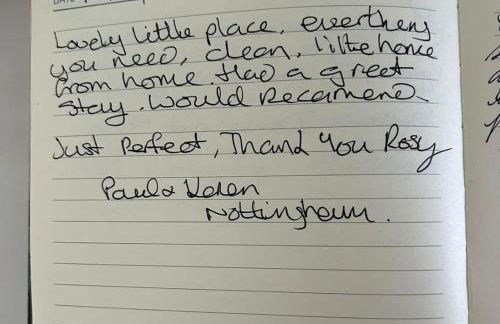 DATE
Lovely little place, everthing
you need, clean, like home
from home Had a great
stay. Would Recamend.
Just Perfect, Thank You Rosy
Paul & Karen
Nottingham.